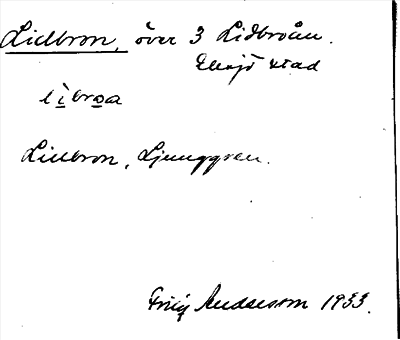 Lidbron, över 3 Lidbroån.
Eksjö stad
libroa
Lidbron, Ljunggren.
Andersson 1933.